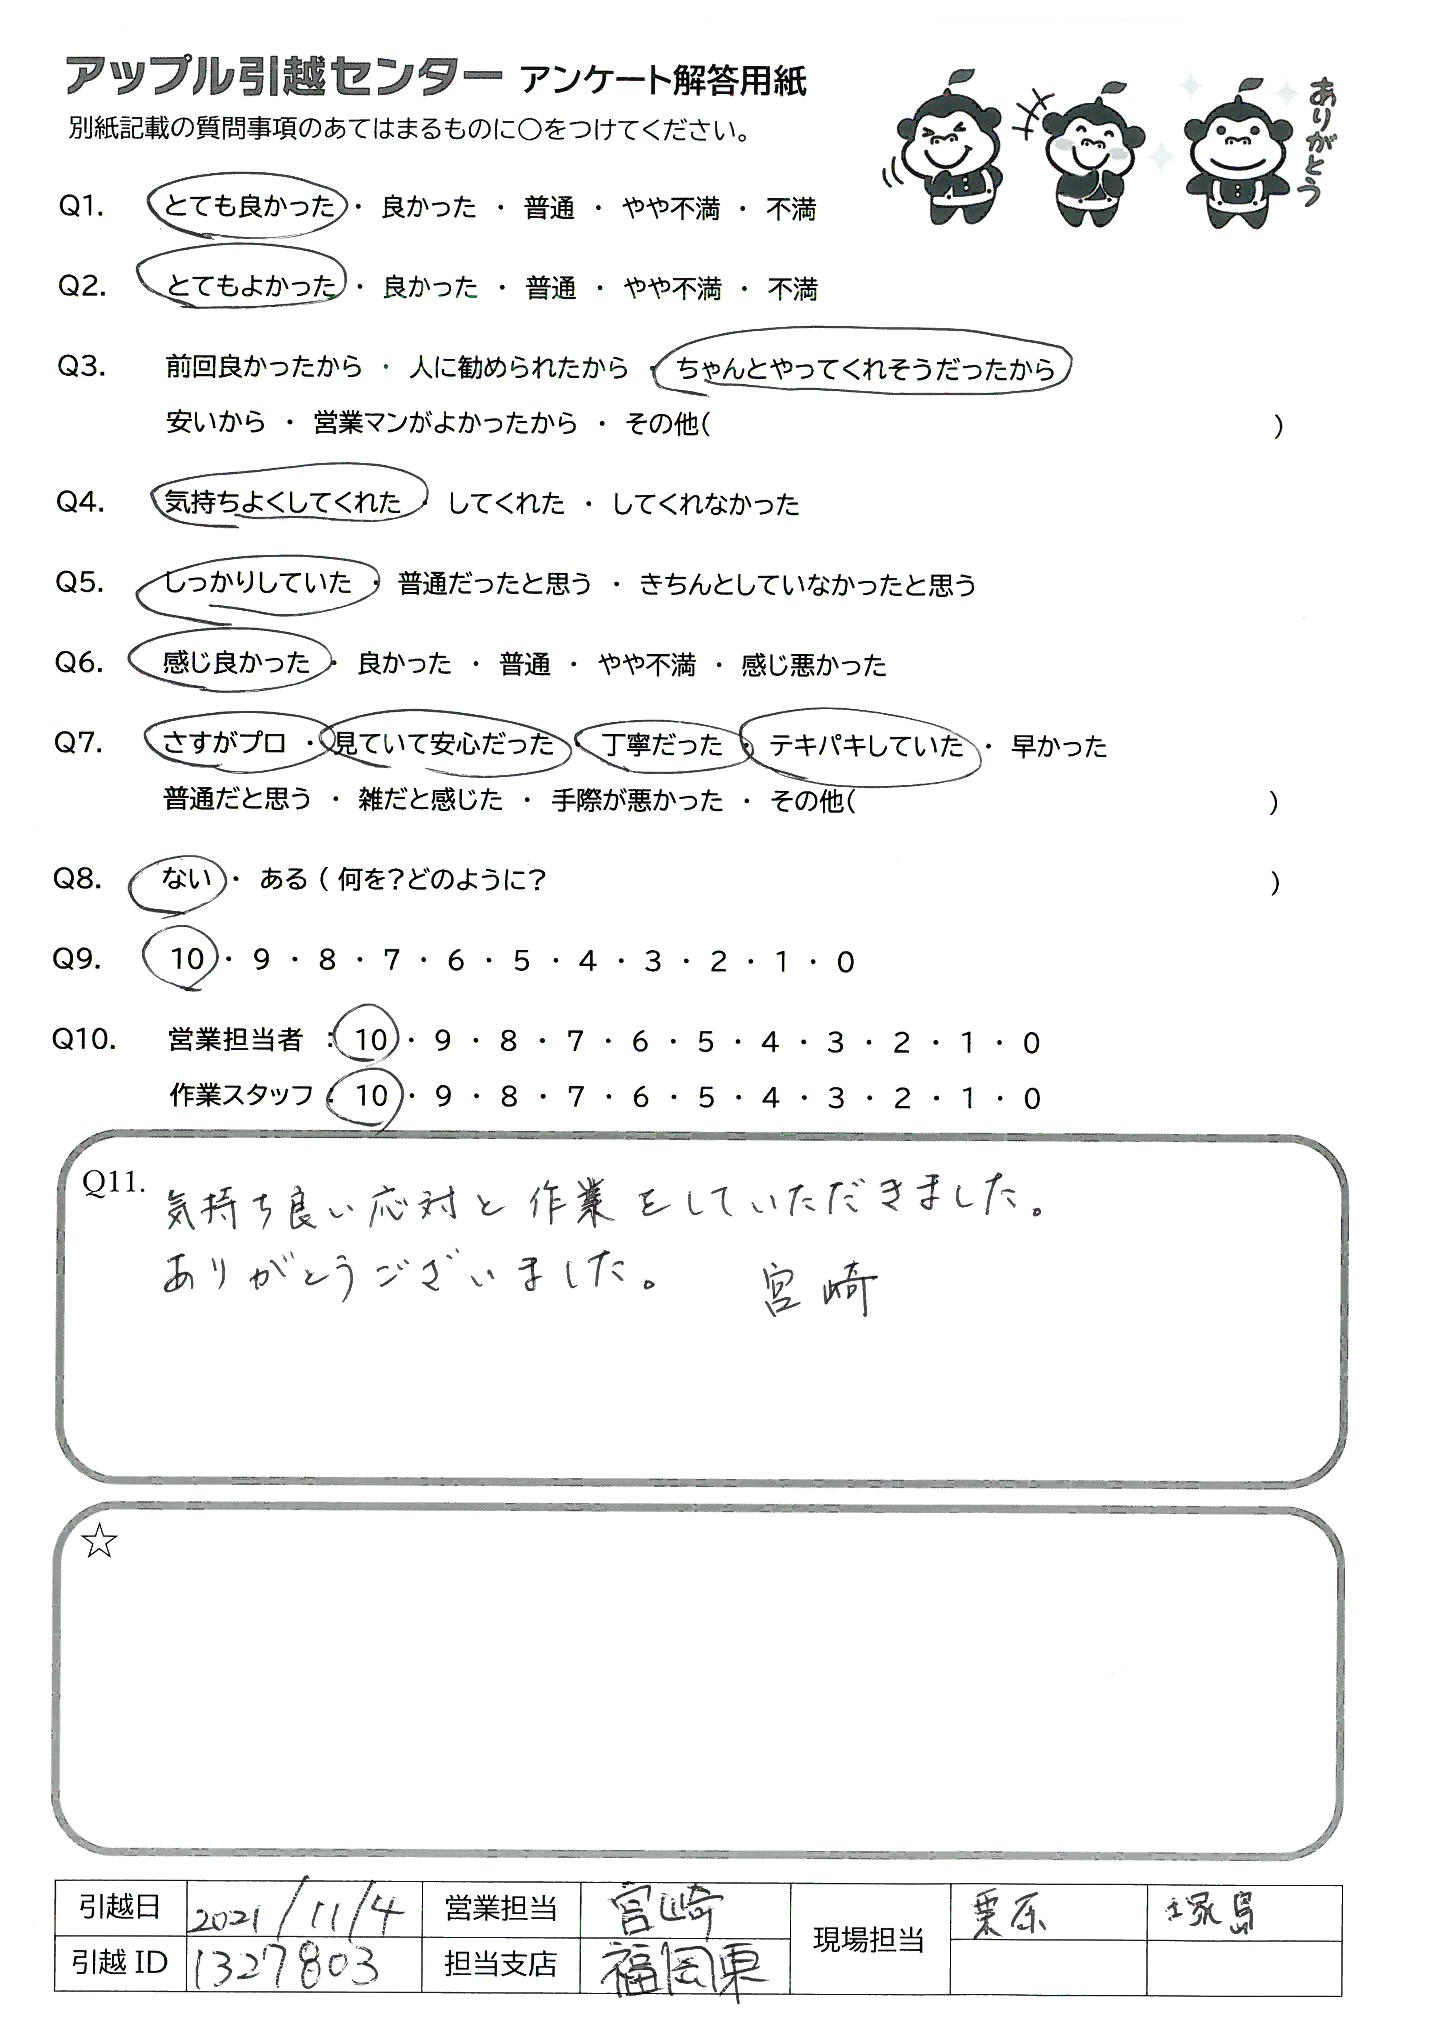 アップル引越センター アンケート解答用紙
別紙記載の質問事項のあてはまるものに〇をつけてください。
ありがとう
Q1. とても良かった ・ 良かった ・ 普通 ・ やや不満 ・ 不満
Q2. とてもよかった ・ 良かった ・ 普通 ・ やや不満 ・ 不満
Q3. 前回良かったから ・ 人に勧められたから ・ ちゃんとやってくれそうだったから
安いから ・ 営業マンがよかったから ・ その他( )
Q4. 気持ちよくしてくれた ・ してくれた ・ してくれなかった
Q5. しっかりしていた ・ 普通だったと思う ・ きちんとしていなかったと思う
Q6. 感じ良かった ・ 良かった ・ 普通 ・ やや不満 ・ 感じ悪かった
Q7. さすがプロ ・ 見ていて安心だった ・ 丁寧だった ・ テキパキしていた ・ 早かった
普通だと思う ・ 雑だと感じた ・ 手際が悪かった ・ その他( )
Q8. ない ・ ある ( 何を?どのように? )
Q9. 10 ・ 9 ・ 8 ・ 7 ・ 6 ・ 5 ・ 4 ・ 3 ・ 2 ・ 1 ・ 0
Q10. 営業担当者 : 10 ・ 9 ・ 8 ・ 7 ・ 6 ・ 5 ・ 4 ・ 3 ・ 2 ・ 1 ・ 0
作業スタッフ : 10 ・ 9 ・ 8 ・ 7 ・ 6 ・ 5 ・ 4 ・ 3 ・ 2 ・ 1 ・ 0
Q11. 気持ち良い応対と作業をしていただきました。
ありがとうございました。 宮崎
☆
引越日 2021/11/4 営業担当 宮崎 現場担当 栗原 塚島
引越 ID 1327803 担当支店 福岡東